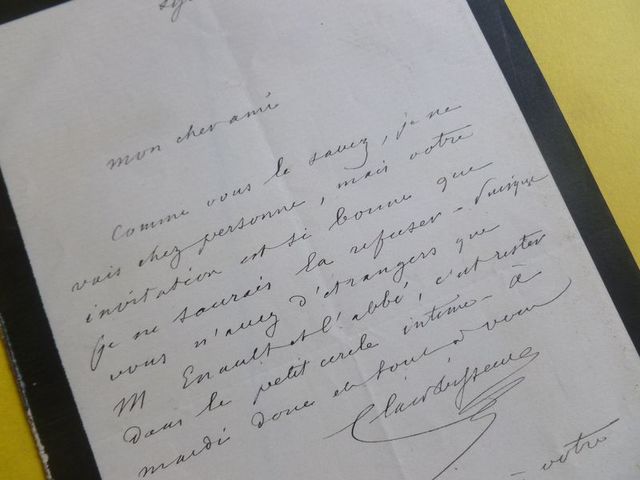 mon cher ami
Comme vous le savez, je ne
vais chez personne, mais votre
invitation est si bonne que
je ne saurais la refuser - Puisque
vous n'avez d'étrangers que
M Enault et l'abbé, c'est rester
dans le petit cercle intime - à
mardi donc et tout à vous
votre